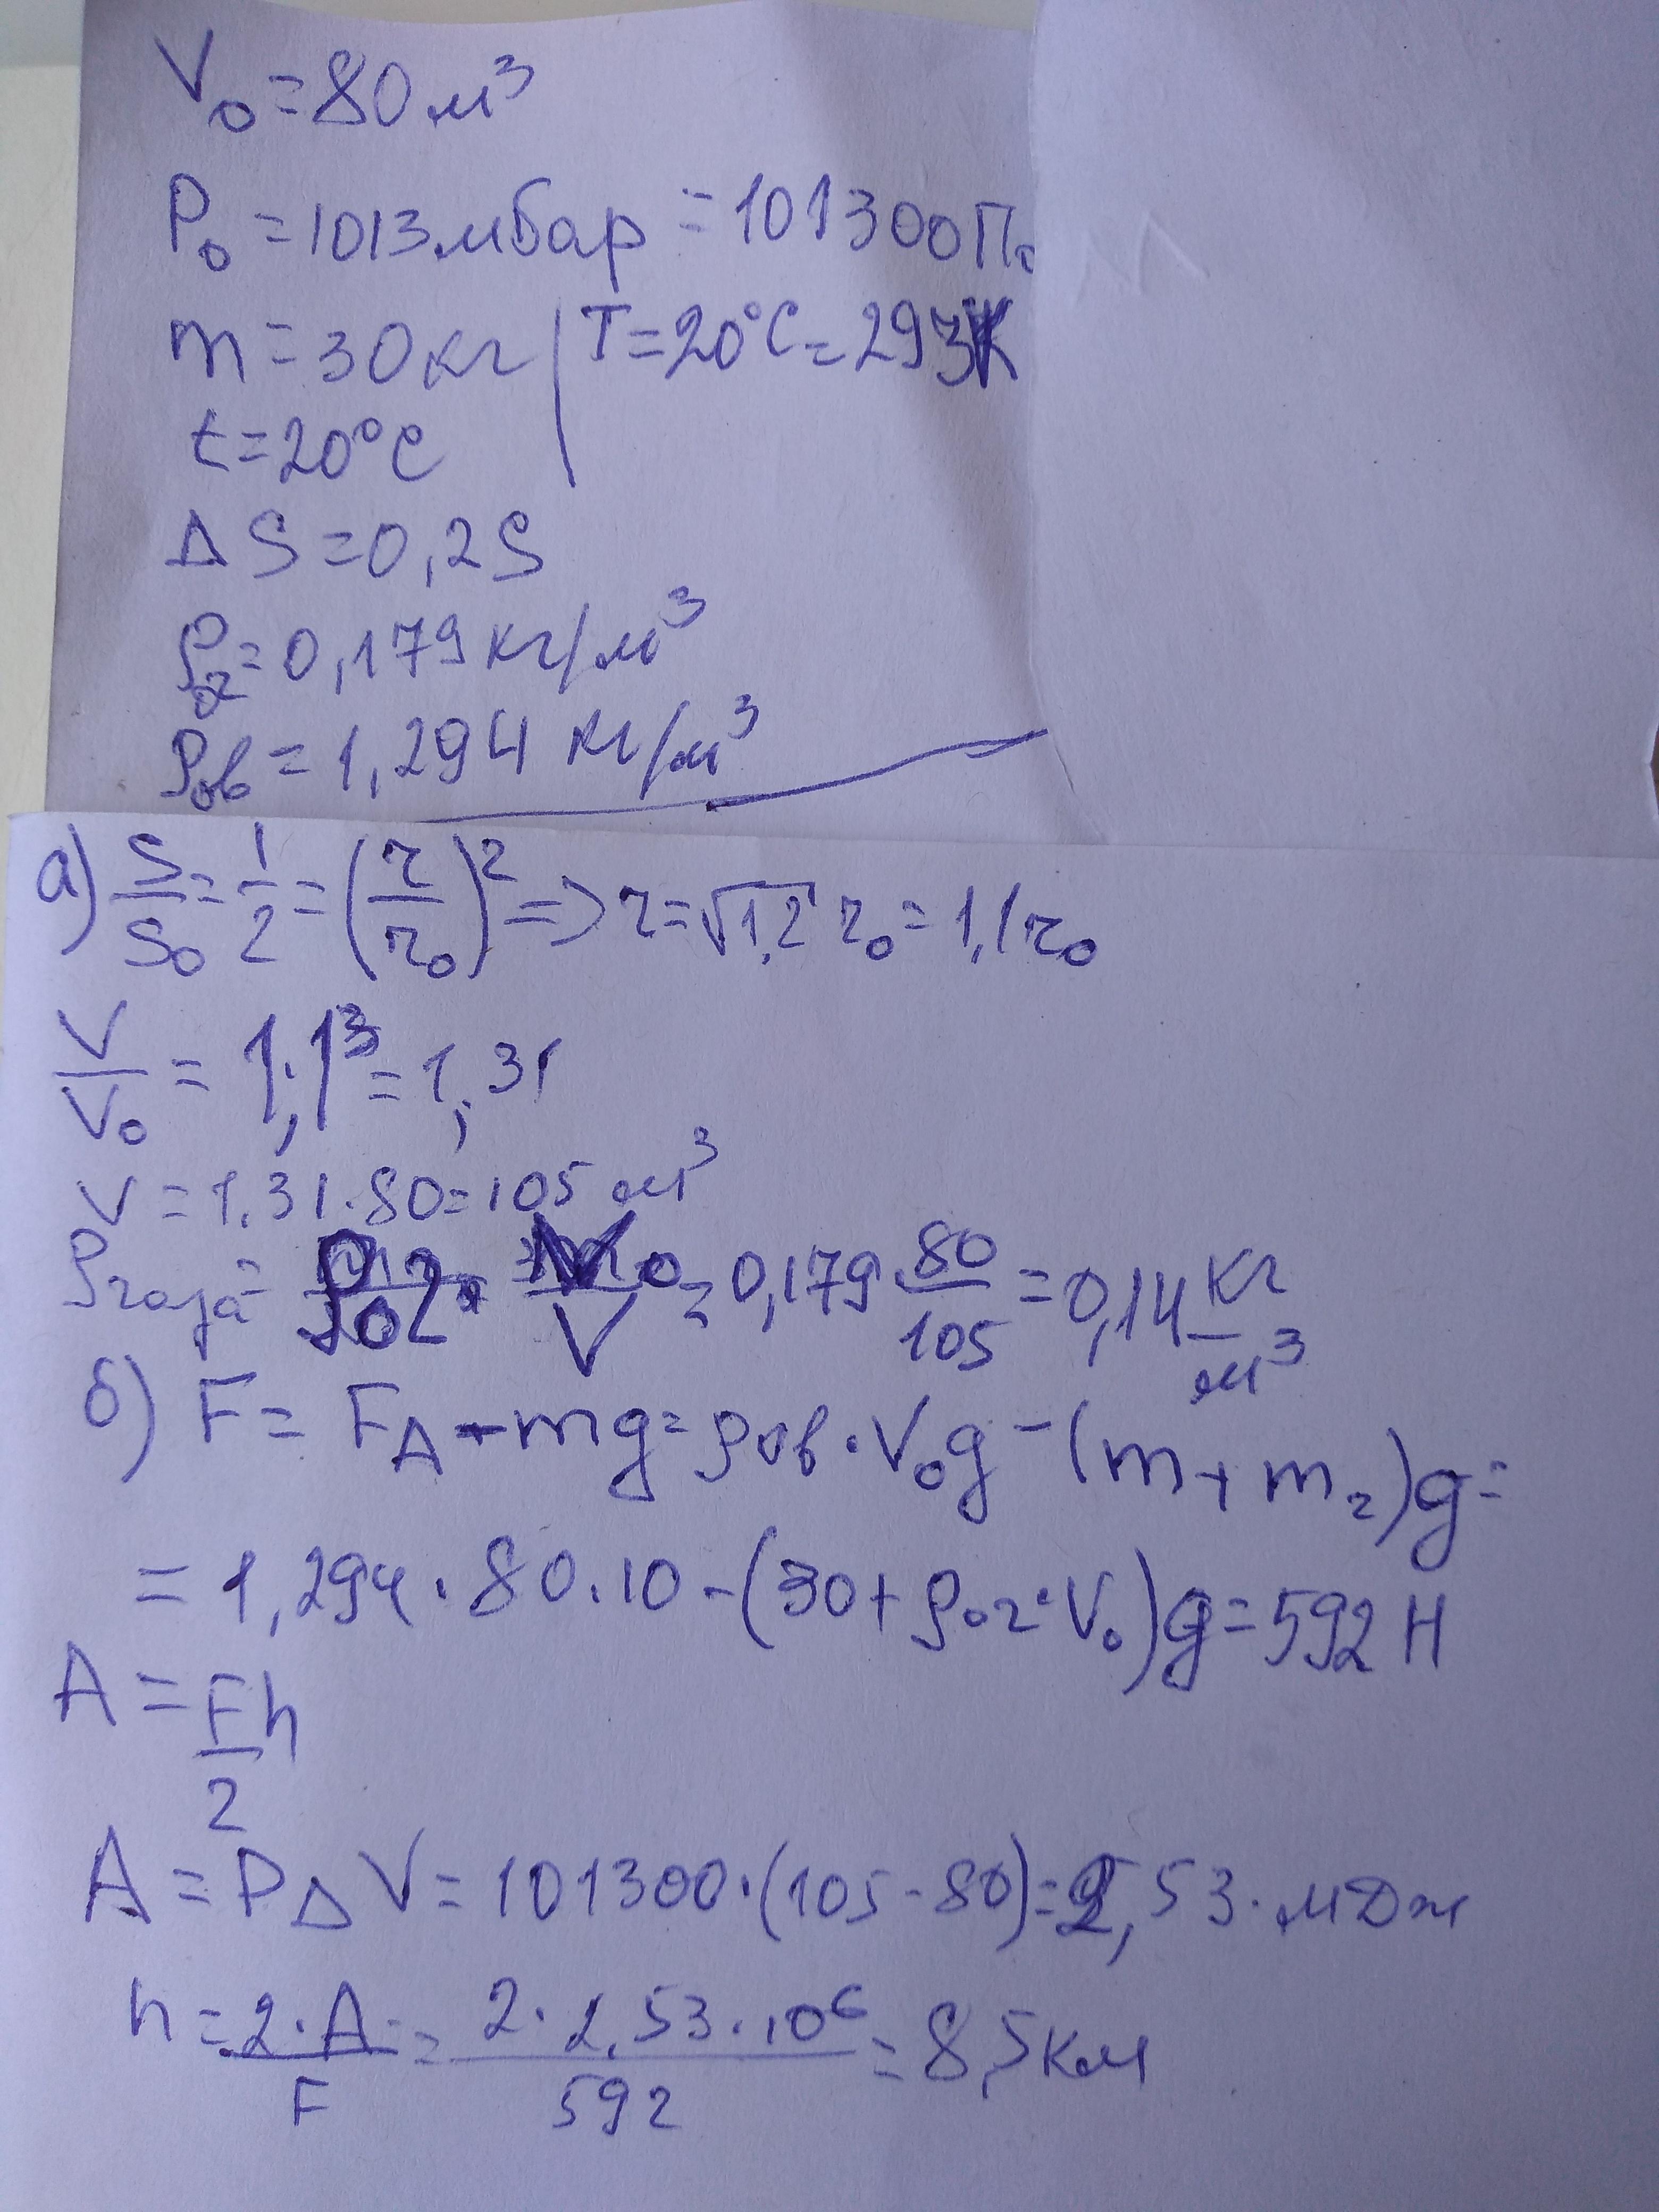 V₀ = 80 м³
P₀ = 1013 мбар = 101300 П
m = 30 кг | T = 20°C = 293K
t = 20°C
ΔS = 0,2S
ρ₀г = 0,179 кг/м³
ρ₀в = 1,294 кг/м³
а) S/S₀ = 1/2 = (r/r₀)² => r = √1,2 r₀ = 1,1r₀
V/V₀ = 1,1³ = 1,31
V = 1.31·80 = 105 м³
ρгаза = ρ₀г · V₀/V = 0,179 · 80/105 = 0,14 кг/м³
б) F = F_A - mg = ρ₀в · V₀g - (m + mг)g =
= 1,294 · 80 · 10 - (30 + ρ₀г · V₀)g = 592 Н
A = Fh/2
A = PΔV = 101300 · (105 - 80) = 2,53 · мДж
h = 2·A/F = 2·2,53·10⁶/592 = 8,5 км